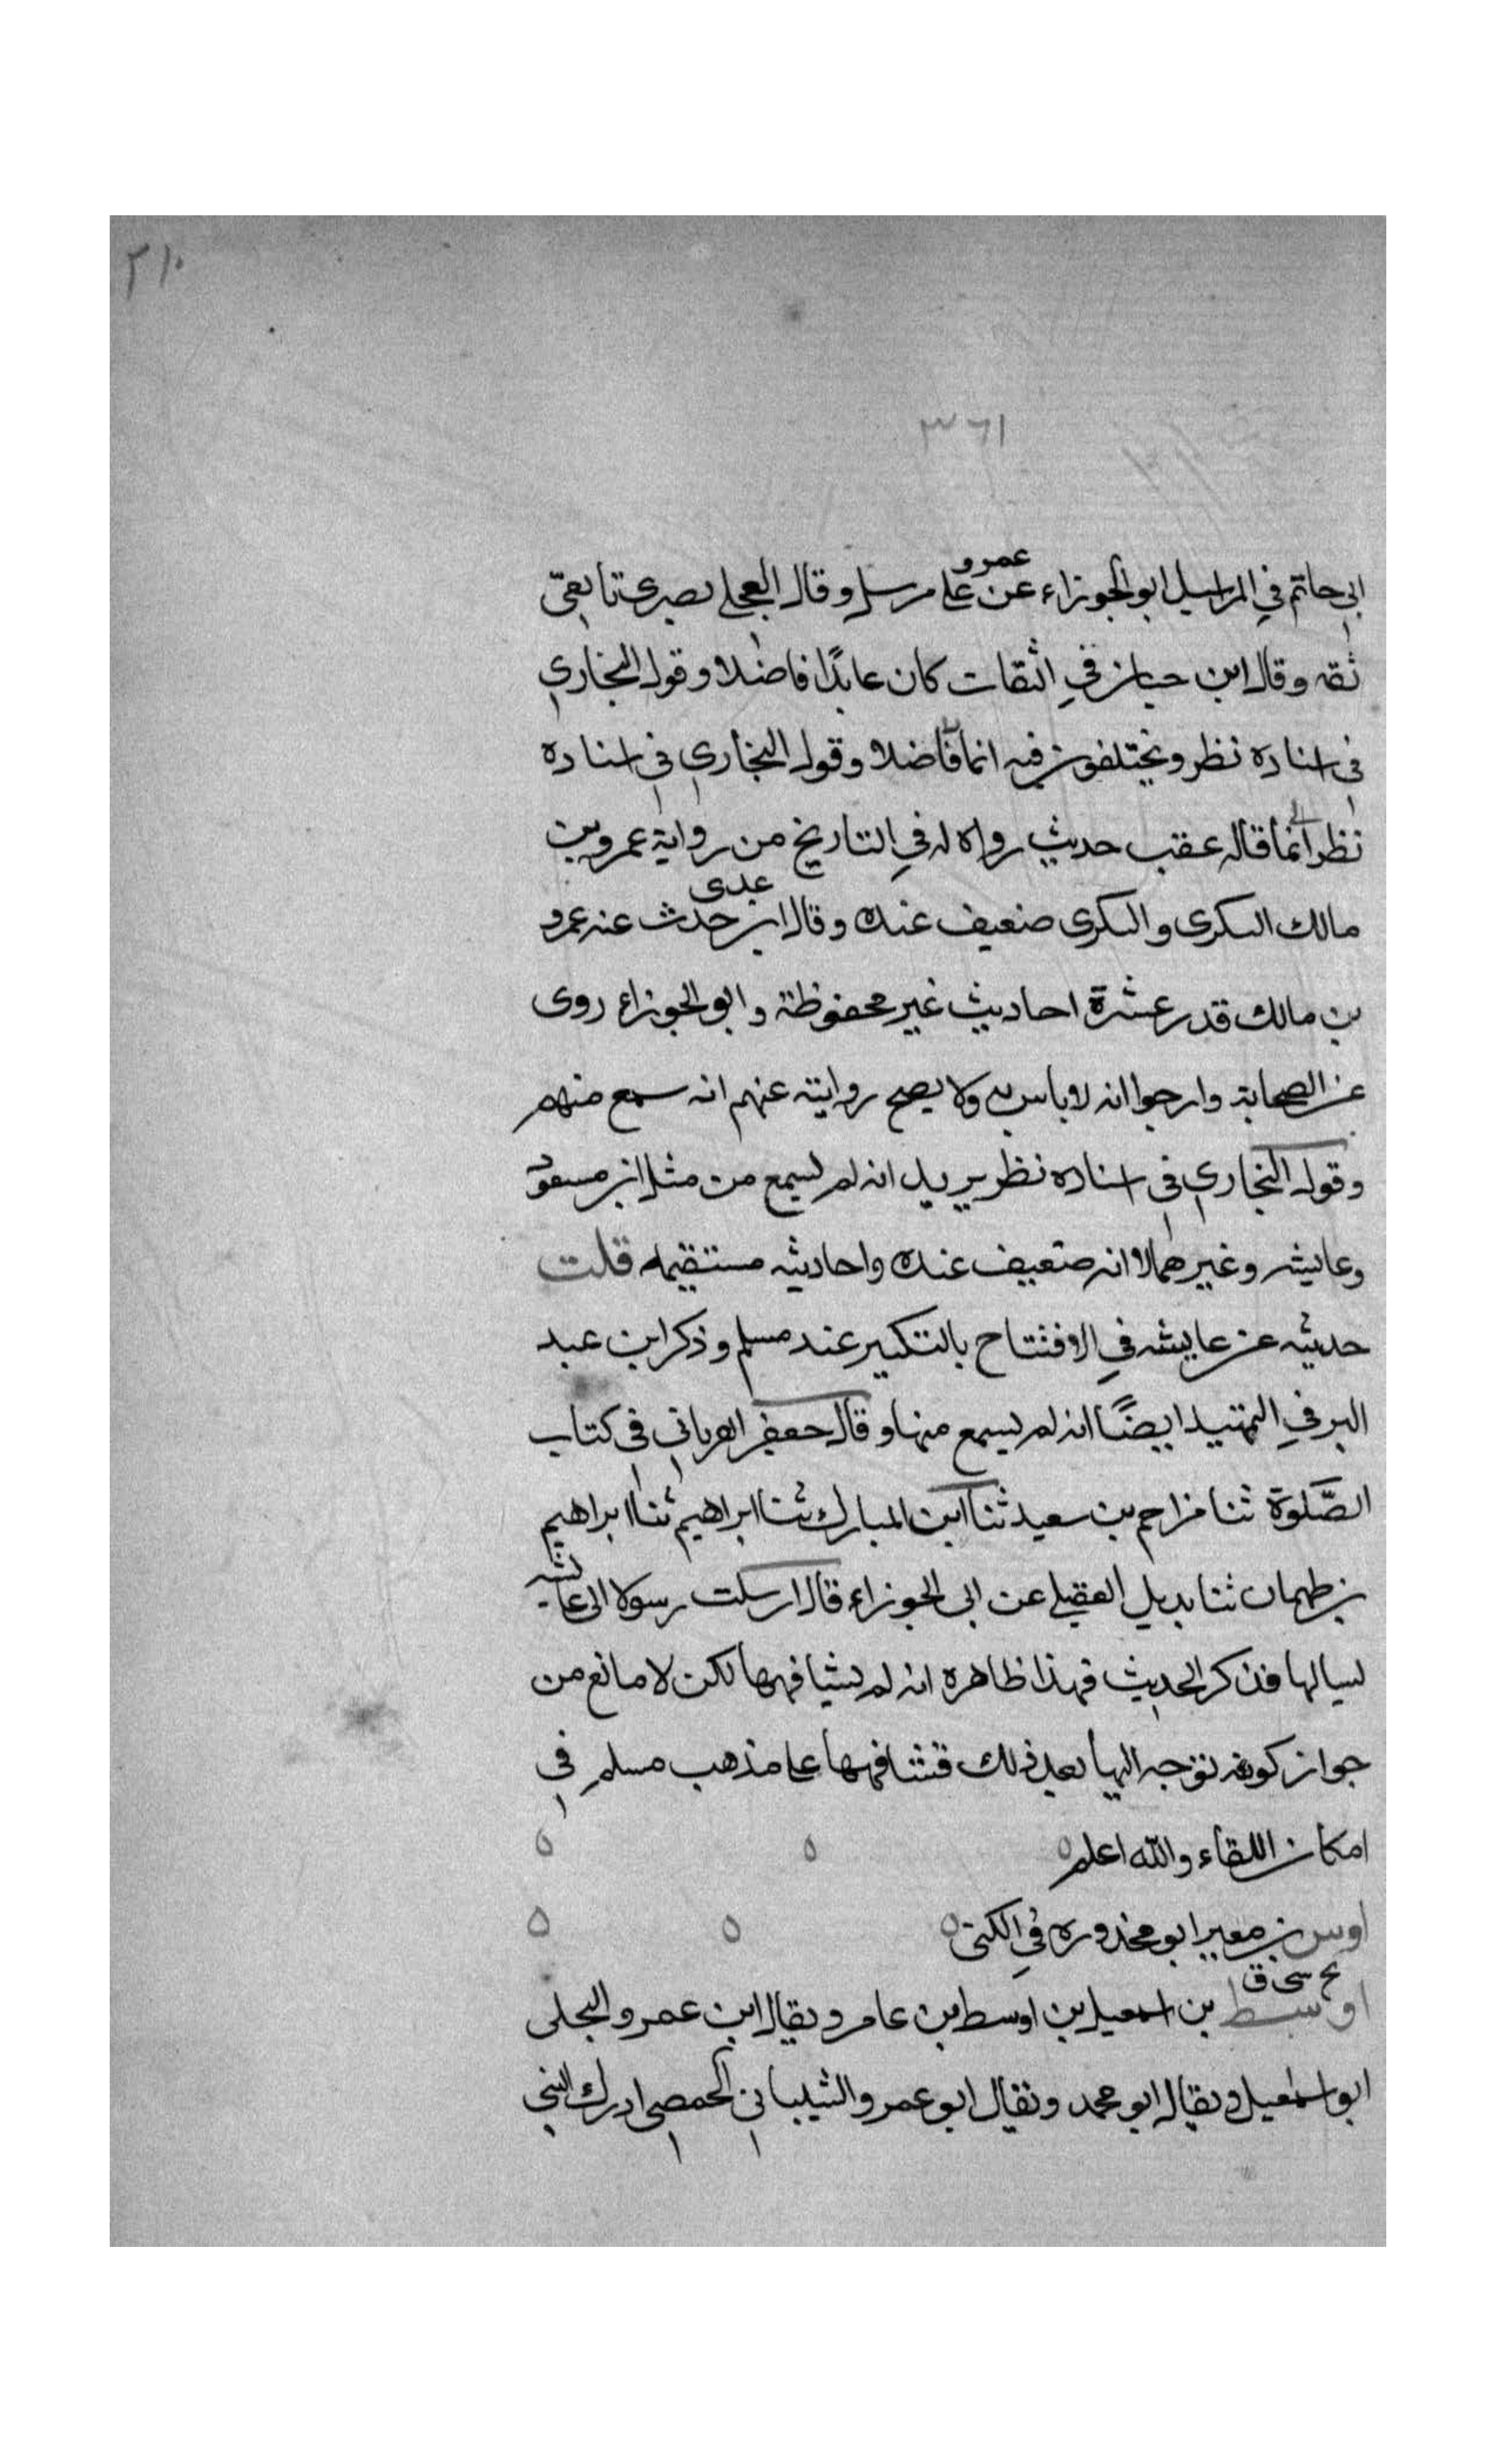 ٢١٠
٣٦١
ابي حاتم في المراسيل ابو الجوزاء عن عمرو علي مرسل وقال العجلي بصري تابعيّ
ثقه وقال ابن حبان في الثقات كان عابدًا فاضلا وقول البخاري
في اسناده نظر ويختلفون فيه انما فاضلا وقول البخاري في اسناده
نظر انما قاله عقب حديث رواه له في التاريخ من رواية عمرو بن
مالك البكري والبكري ضعيف عنده وقال ابن عدى حدث عنه عمرو
بن مالك قدر عشرة احاديث غير محفوظة وابو الجوزاء روى
عن الصحابة وارجوا انه لا باس به ولا يصح روايته عنهم انه سمع منهم
وقول البخاري في اسناده نظر يريد انه لم يسمع من مثل ابن مسعود
وعايشه وغيرهما لا انه ضعيف عنده واحاديثه مستقيمه قلت
حديثه عن عايشه في الافتتاح بالتكبير عند مسلم وذكر ابن عبد
البر في التمهيد ايضًا انه لم يسمع منها وقال جعفر الفريابي في كتاب
الصَّلوة ثنا مزاحم بن سعيد ثنا ابن المبارك ثنا ابراهيم ثنا ابراهيم
بن طهمان ثنا بديل العقيلي عن ابي الجوزاء قال ارسلت رسولا الى عائشه
ليسالها فذكر الحديث فهذا ظاهره انه لم يشافهها لكن لا مانع من
جواز كونه توجه اليها بعد ذلك فشافهها على مذهب مسلم في
امكان اللقاء والله اعلم
اوس بن معير ابو محذوره في الكنى
بخ سى ق
اوسط بن اسمعيل بن اوسط بن عامر ويقال ابن عمرو البجلى
ابو اسمعيل ويقال ابو محمد ويقال ابو عمرو الشيباني الحمصي ادرك النبي